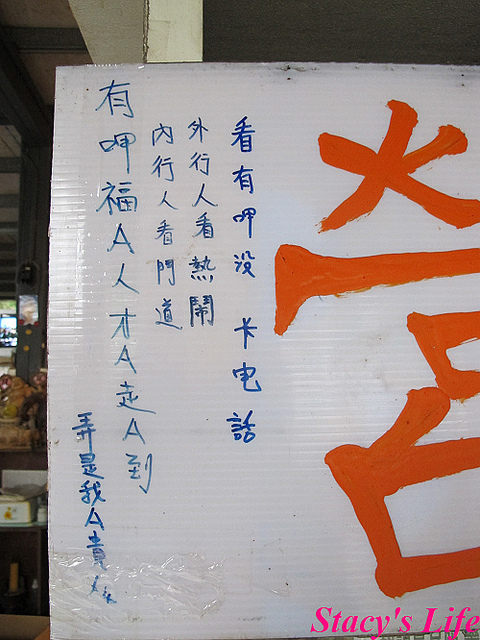 看有呷没 卡电話
外行人看熱鬧
內行人看門道
有呷福A人才A走A到
弄是我A貴
Stacy's Life